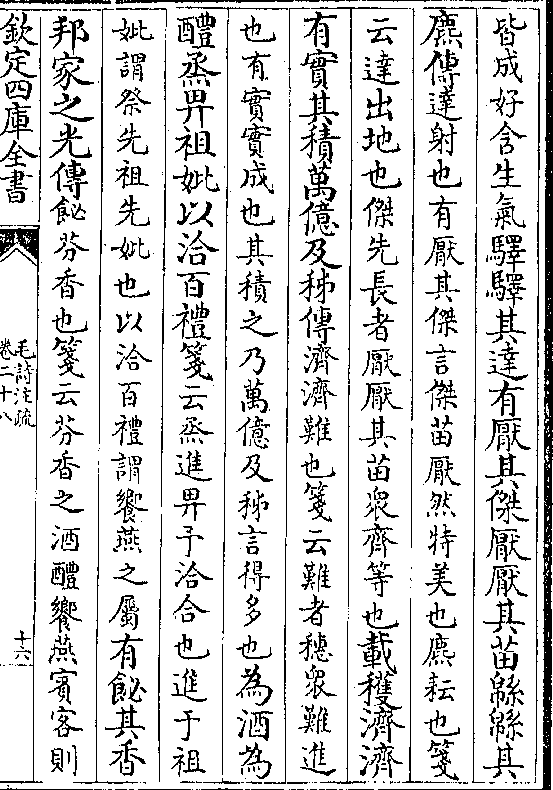 皆成好含生氣驛驛其達有厭其傑厭厭其苗緜緜其
麃傳達射也有厭其傑言傑苗厭然特美也麃耘也箋
云達出地也傑先長者厭厭其苗衆齊等也載穫濟濟
有實其積萬億及秭傳濟濟難也箋云難者穗衆難進
也有實實成也其積之乃萬億及秭言得多也為酒為
醴烝畀祖妣以洽百禮箋云烝進畀予洽合也進予祖
妣謂祭先祖先妣也以洽百禮謂饗燕之屬有飶其香
邦家之光傳飶芬香也箋云芬香之酒醴饗燕賓客則
欽定四庫全書
毛詩注疏
卷二十八
十六